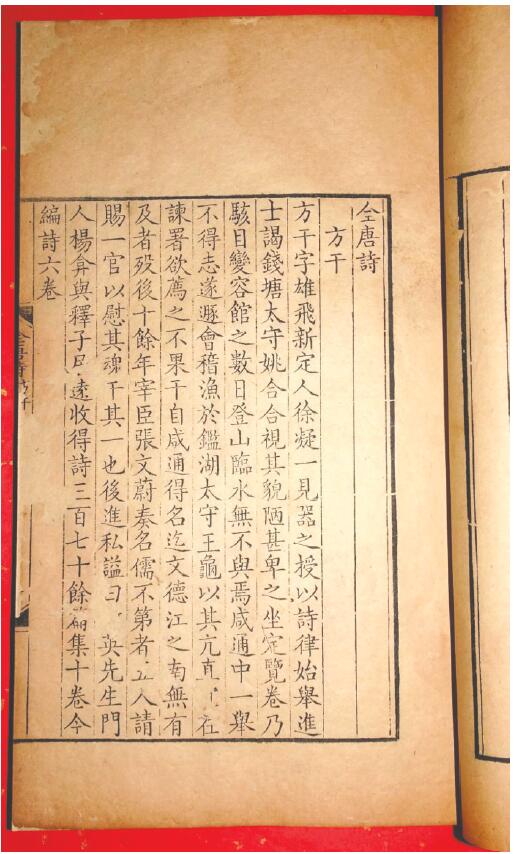 全唐詩
方干
方干字雄飛新定人徐凝一見器之授以詩律始舉進
士謁錢塘太守姚合合視其貌陋甚卑之坐定覽卷乃
駭目變容館之數日登山臨水無不與焉咸通中一舉
不得志遂遯會稽漁於鑑湖太守王龜以其亢直在
諫署欲薦之不果干自咸通得名迄文德江之南無有
及者歿後十餘年宰臣張文蔚奏名儒不第者五人請
賜一官以慰其魂干其一也後進私謚曰英先生門
人楊弇與釋子居遠收得詩三百七十餘篇集十卷今
編詩六卷
全唐詩方干